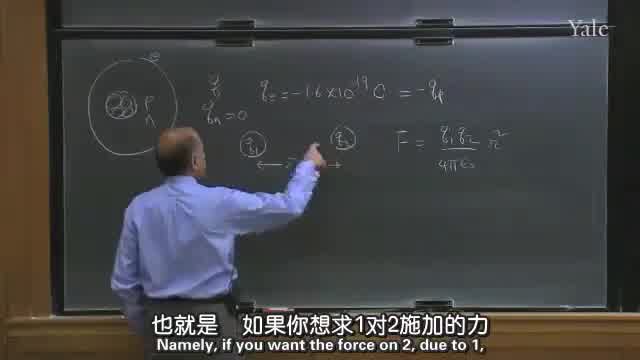 Yale
e
P
n
q
q_n = 0
q_e = -1.6 × 10^-19 C = -q_p
q_1
q_2
F = q_1 q_2 / 4πε_0 r^2
也就是 如果你想求1对2施加的力
Namely, if you want the force on 2, due to 1,